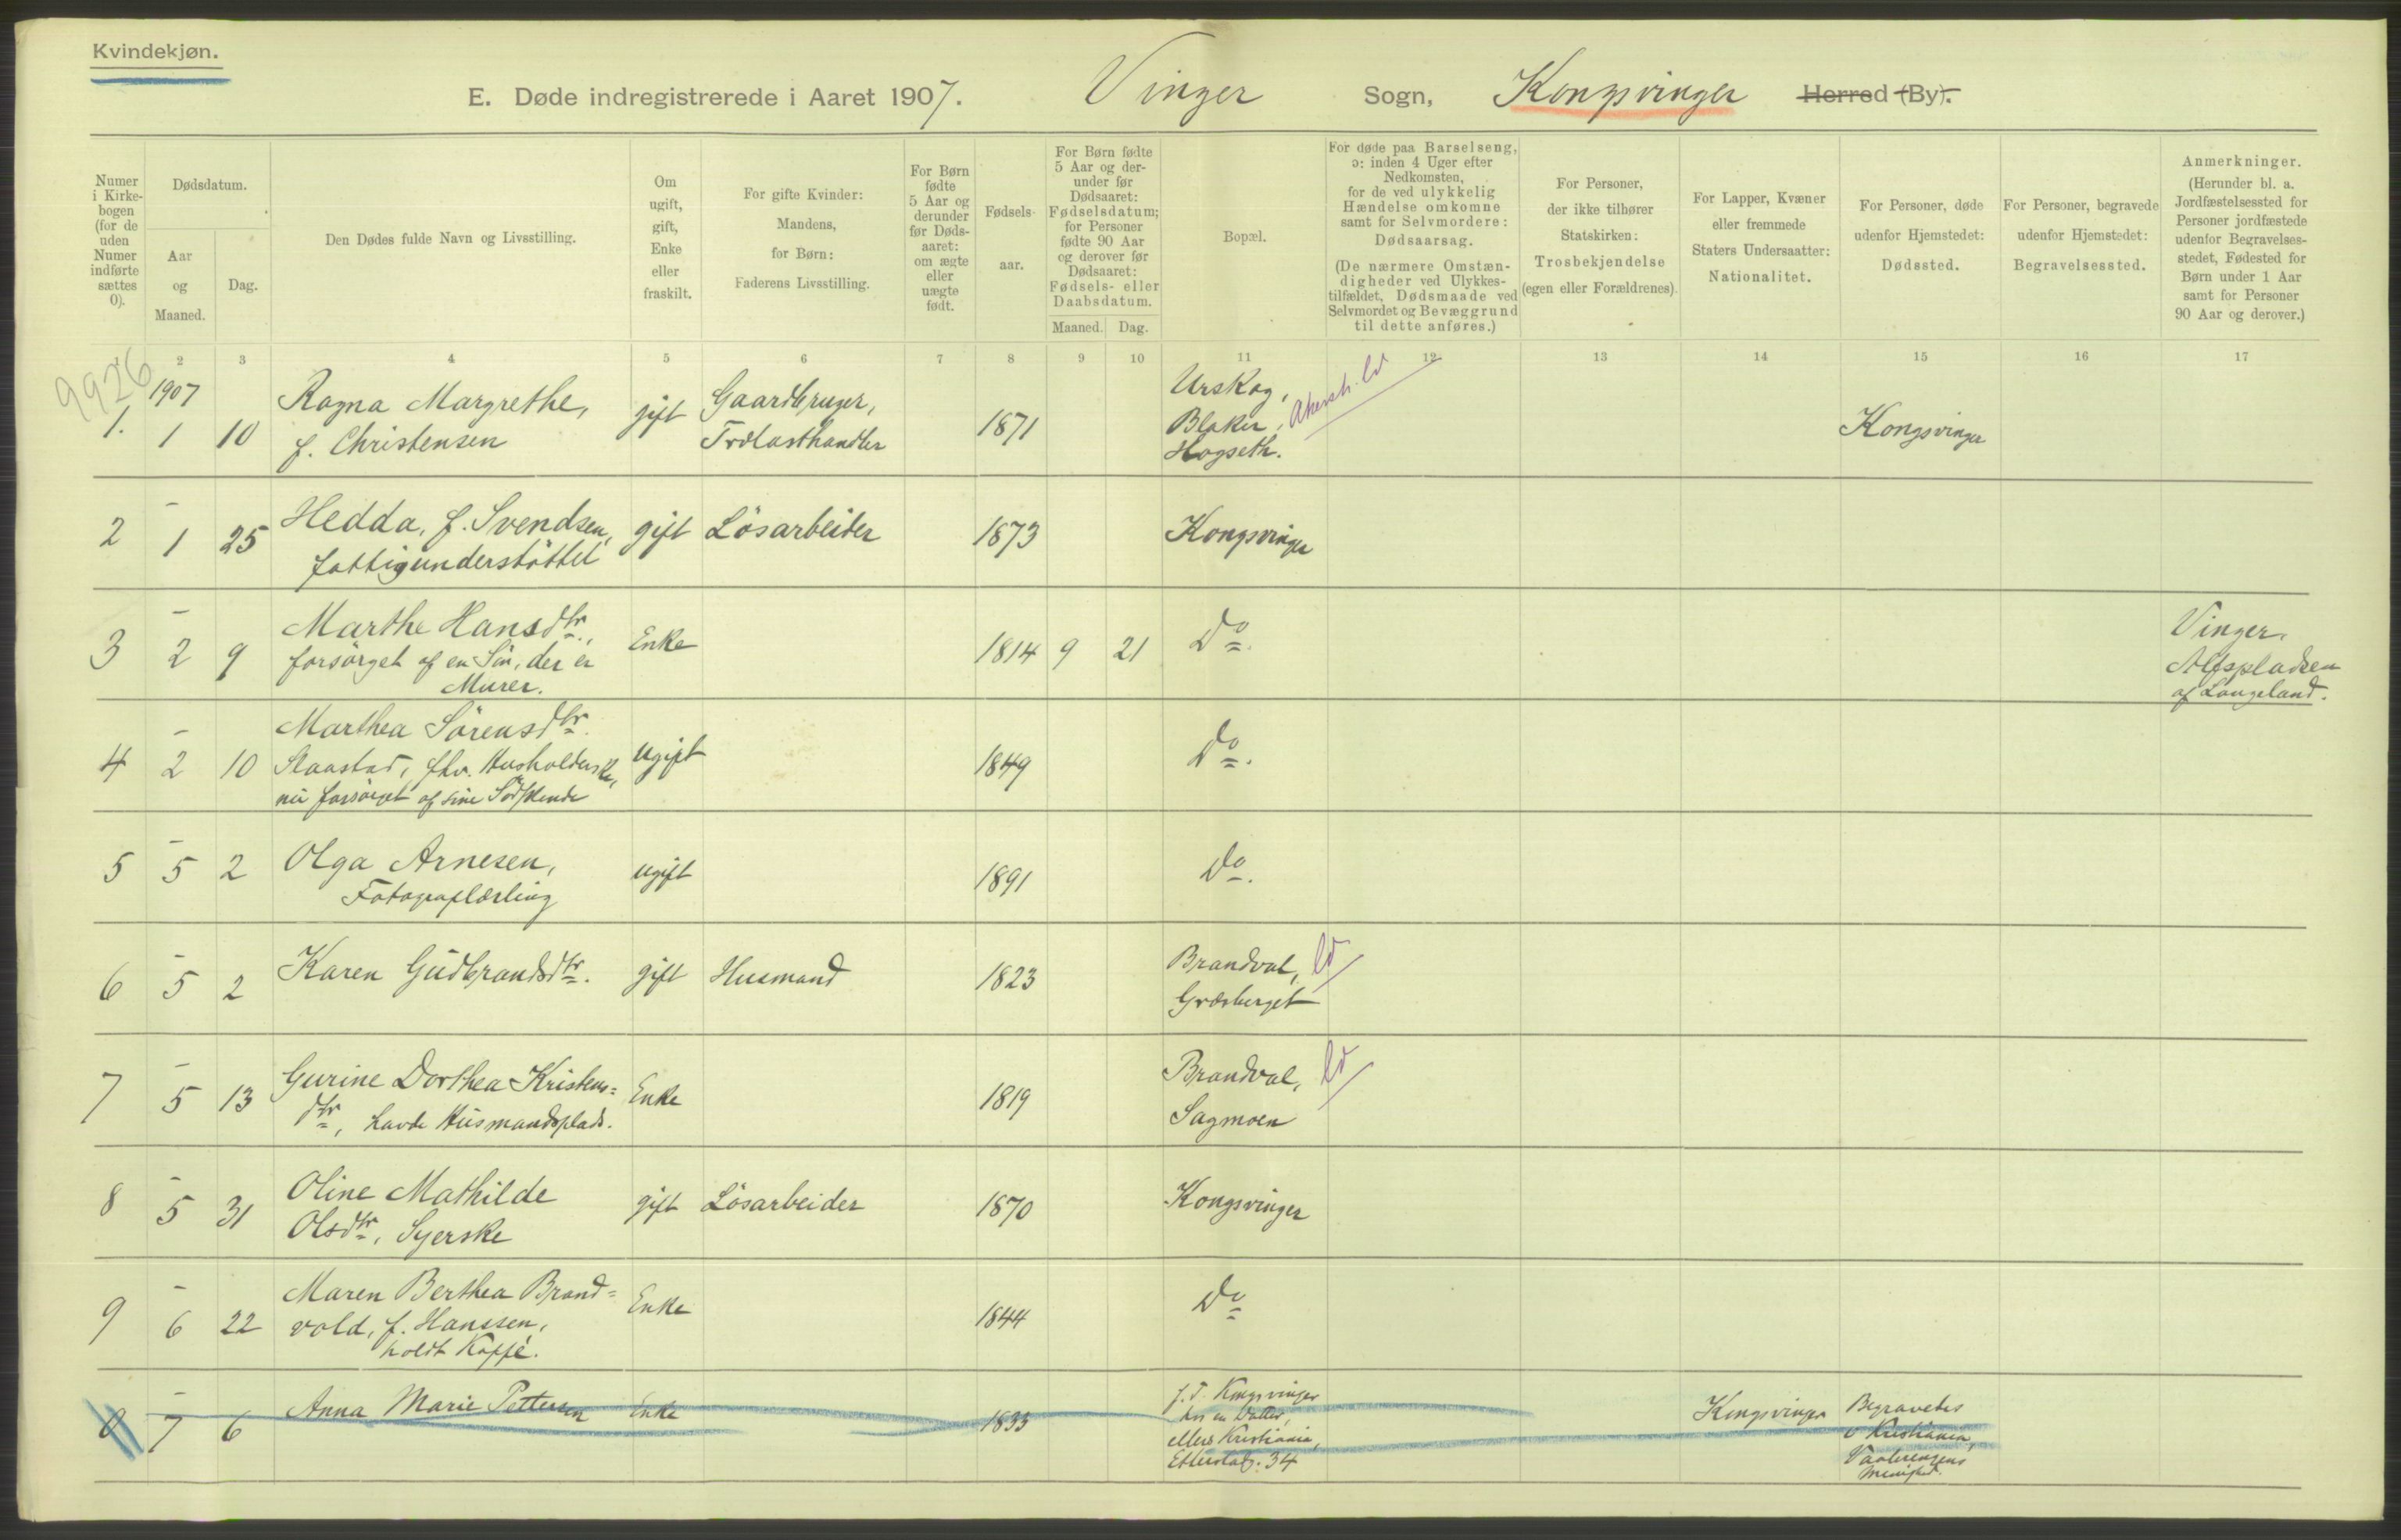 Kvindekjøn.
E. Døde indregistrerede i Aaret 1907. Vinger Sogn, Kongsvinger Herred (By).
Numer i Kirkebogen (for de uden Numer indførte sættes 0).
Dødsdatum.
Aar og Maaned.
Dag.
Den Dødes fulde Navn og Livsstilling.
Om ugift, gift, Enke eller fraskilt.
For gifte Kvinder: Mandens, for Børn: Faderens Livsstilling.
For Børn fødte 5 Aar og derunder før Dødsaaret: om ægte eller uægte født.
Fødselsaar.
For Børn fødte 5 Aar og derunder før Dødsaaret: Fødselsdatum; for Personer fødte 90 Aar og derover før Dødsaaret: Fødsels- eller Daabsdatum.
Maaned. Dag.
Bopæl.
For døde paa Barselseng, ɔ: inden 4 Uger efter Nedkomsten, for de ved ulykkelig Hændelse omkomne samt for Selvmordere: Dødsaarsag.
(De nærmere Omstændigheder ved Ulykkestilfældet, Dødsmaade ved Selvmordet og Bevæggrund til dette anføres.)
For Personer, der ikke tilhører Statskirken: Trosbekjendelse (egen eller Forældrenes).
For Lapper, Kvæner eller fremmede Staters Undersaatter: Nationalitet.
For Personer, døde udenfor Hjemstedet: Dødssted.
For Personer, begravede udenfor Hjemstedet: Begravelsessted.
Anmerkninger. (Herunder bl. a. Jordfæstelsessted for Personer jordfæstede udenfor Begravelsesstedet, Fødested for Børn under 1 Aar samt for Personer 90 Aar og derover.)
2 3 4 5 6 7 8 9 10 11 12 13 14 15 16 17
9926
1. 1907 1 10 Ragna Margrethe, f. Christensen gift Gaardbruger, Trælasthandler 1871 Urskog, Blaker, Hogseth. Akersh. ld Kongsvinger
2 – 1 25 Hedda, f. Svendsen, fattigunderstöttet gift Lösarbeider 1873 Kongsvinger
3 – 2 9 Marthe Hansdtr., forsörget af en Sön, der er Murer. Enke 1814 9 21 Do. Vinger, Alfspladsen af Langeland.
4 – 2 10 Marthea Sörensdtr. Slaastad, fhv. Husholderske, nu forsörget af sine Södskende ugift 1849 Do.
5 – 5 2 Olga Arnesen, Fotograflærling ugift 1891 Do.
6 – 5 2 Karen Gudbrandsdtr. gift Husmand 1823 Brandval, Græsberget ld
7 – 5 13 Gurine Dorthea Kristens=dtr, havde Husmandsplads. Enke 1819 Brandval, Sagmoen ld
8 – 5 31 Oline Mathilde Olsdtr, Syerske gift Lösarbeider 1870 Kongsvinger
9 – 6 22 Maren Berthea Brand=vold, f. Hanssen, holdt Kaffé. Enke 1844 Do
0 – 7 6 Anna Marie Pettersen Enke 1833 f. T. Kongsvinger hos en Datter, ellers Kristiania, Etterstadg. 34 Kongsvinger Begravedes v Kristiania, Vaalerengens Menighed.